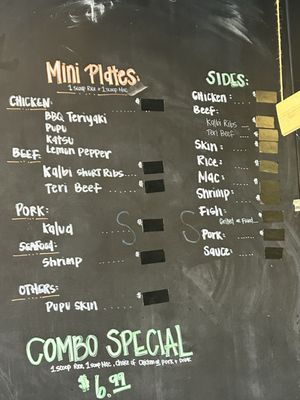 Mini Plates:
1 Scoop Rice + 1 Scoop Mac
CHICKEN:
BBQ Teriyaki
Pupu
Katsu
Lemon Pepper
BEEF:
Kalbi Short Ribs....
Teri Beef
PORK:
Kalua
SEAFOOD:
Shrimp
OTHERS:
Pupu Skin
COMBO SPECIAL
1 Scoop Rice, 1 Scoop Mac, choice of Chicken, Pork +
$6.99
SIDES:
Chicken:
Beef:
Kalbi Ribs
Teri Beef
Skin:
Rice:
Mac:
Shrimp:
Fish:
Grilled or Fried
Pork:
Sauce: